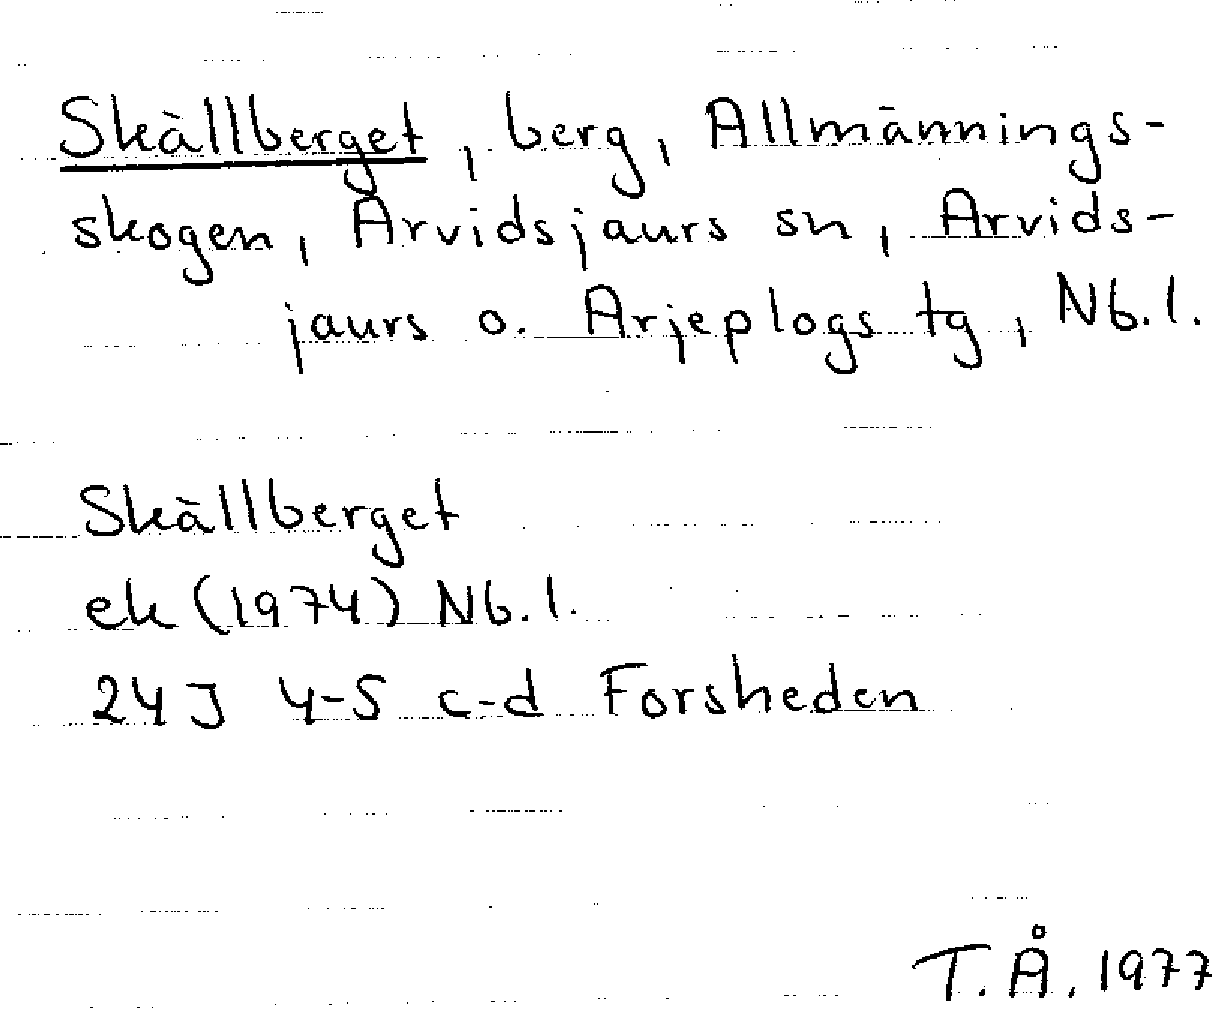 Skällberget, berg, Allmännings-
skogen, Arvidsjaurs sn, Arvids-
jaurs o. Arjeplogs tg, Nb.l.
Skällberget
ek (1974) Nb.l.
24J 4-5 c-d Forsheden
T.Å. 1977